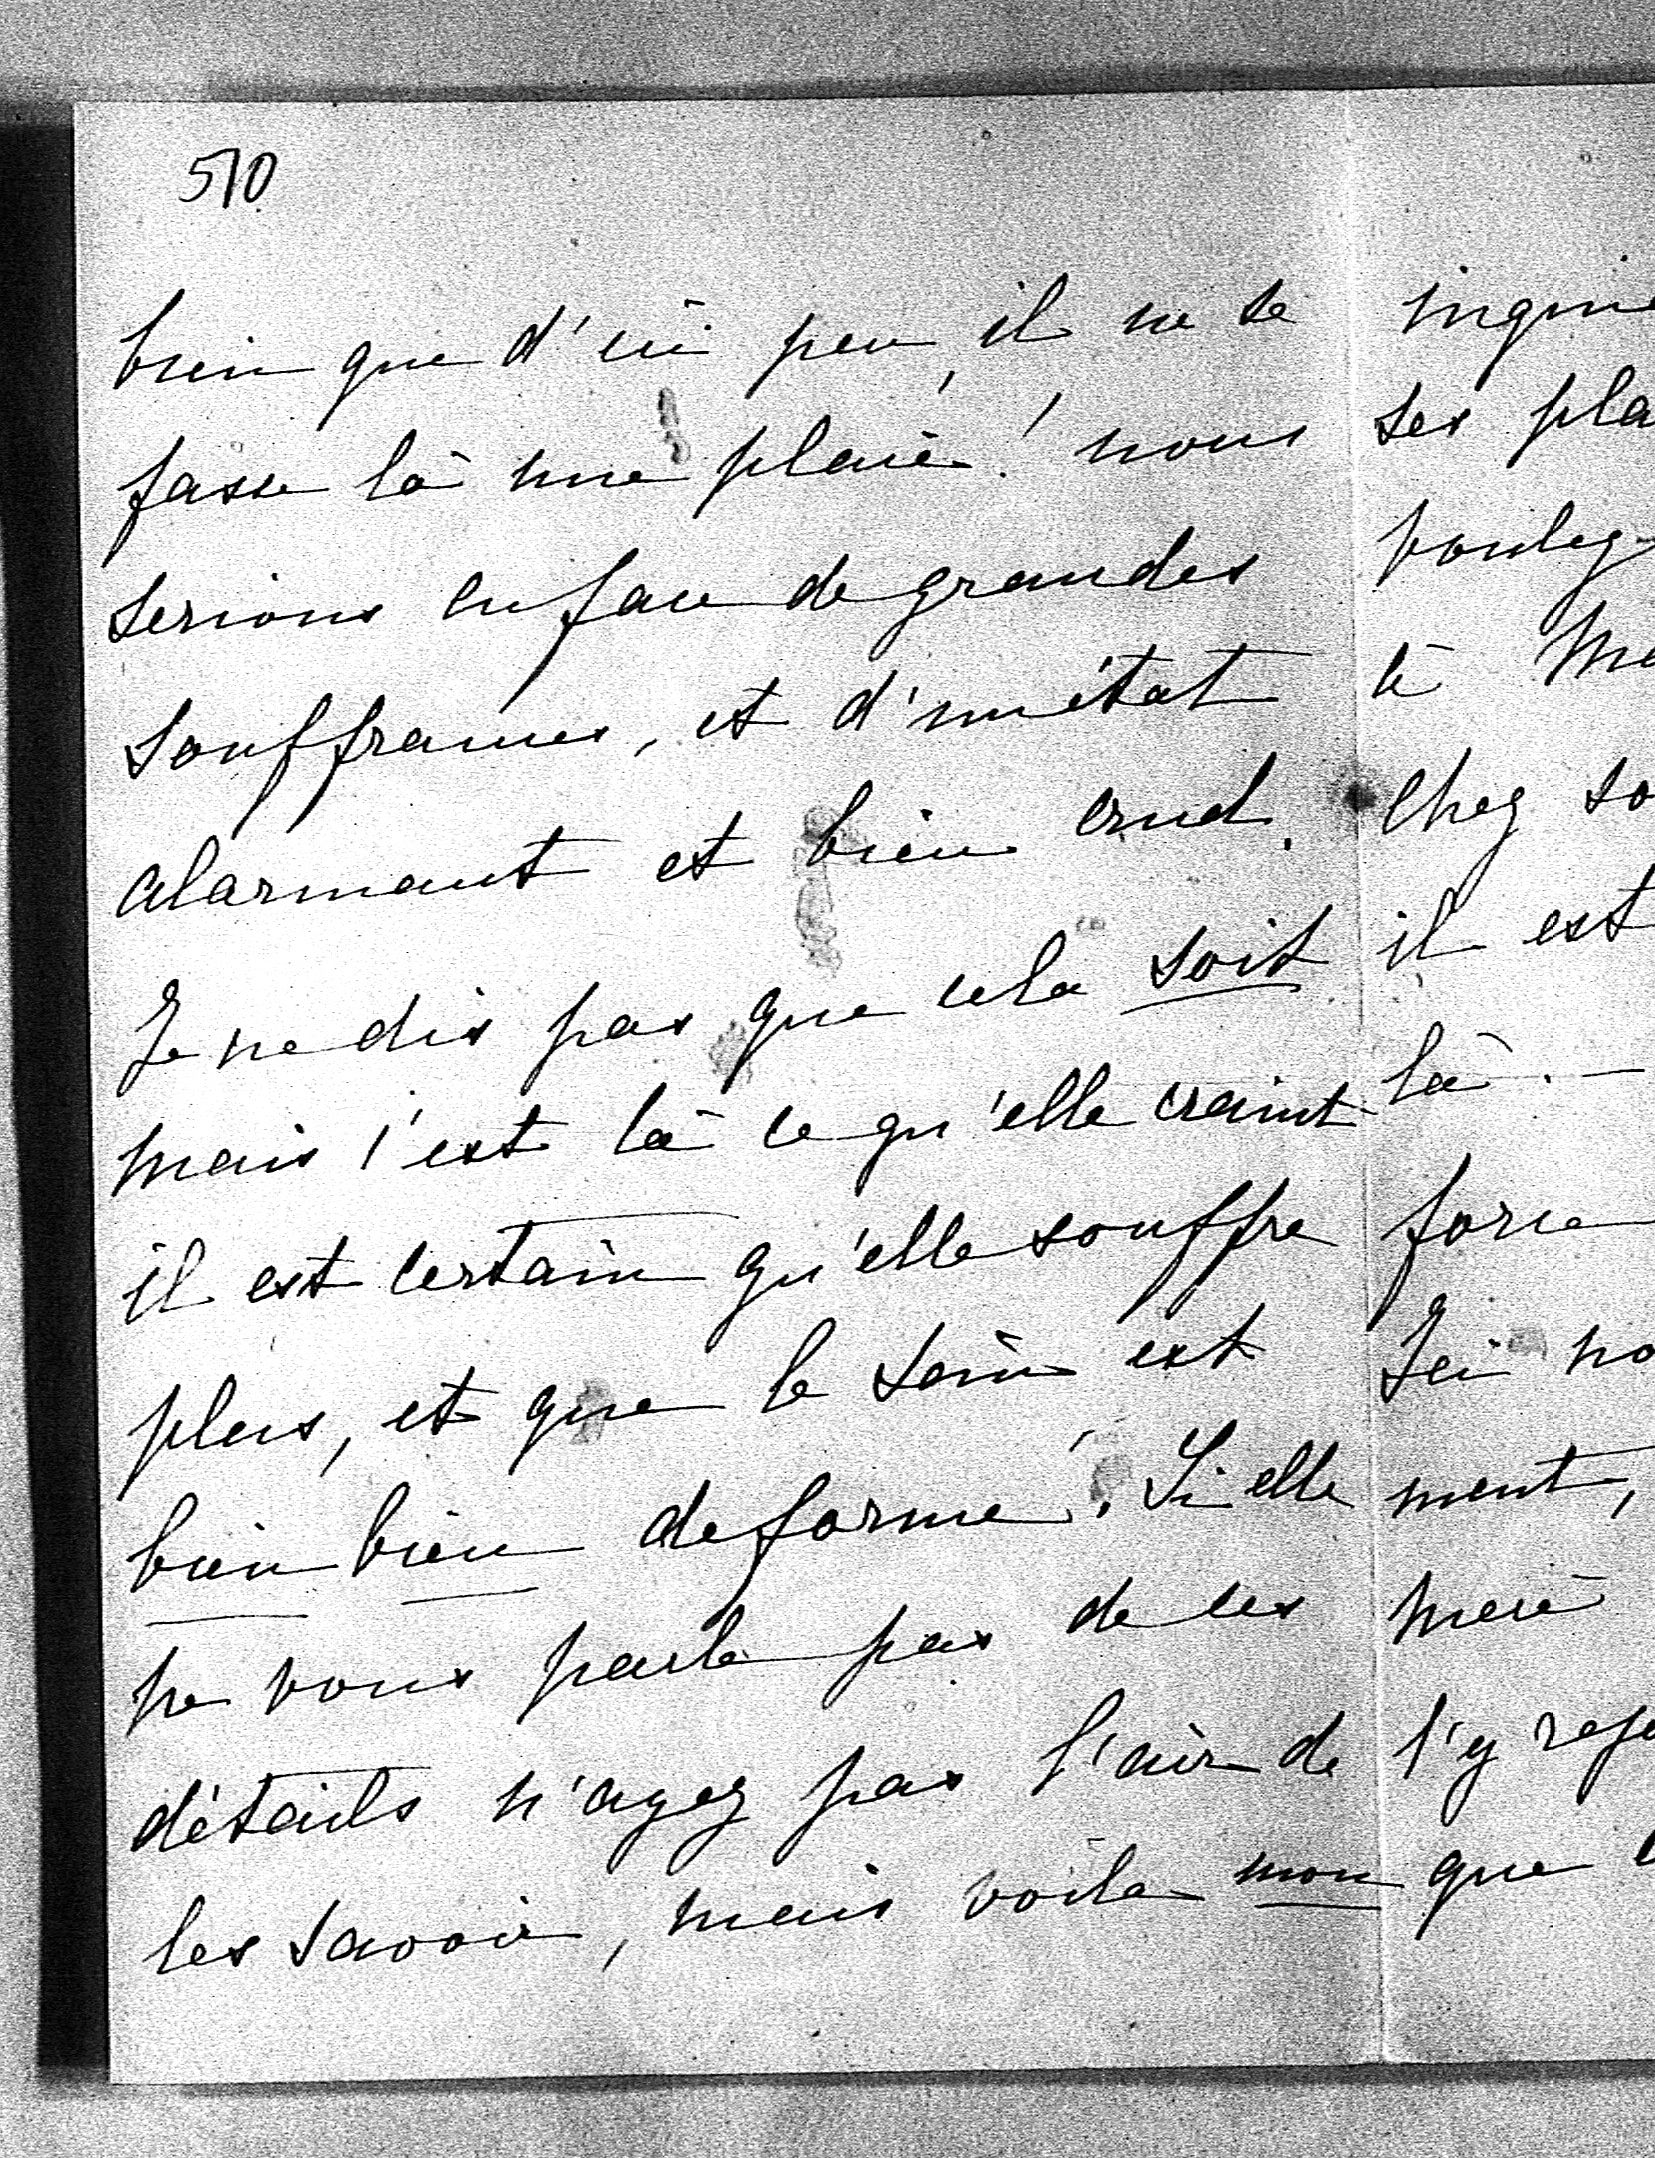 510
bien que d'ici peu, il ne se
fasse là une plaie! nous
serions en face de grandes
souffrances, et d'un état
alarmant et bien cruel.
Je ne dis pas que cela soit
mais c'est là ce qu'elle craint
il est certain qu'elle souffre
plus, et que le sein est
bien bien deformé. Si elle
ne vous parle pas de ces
détails n'ayez pas l'air de
les savoir, mais voila mon
inquié
ses pla
voulez
à Ma
chez so
il est
là. —
force
Ici no
ment,
mere
l'y
que